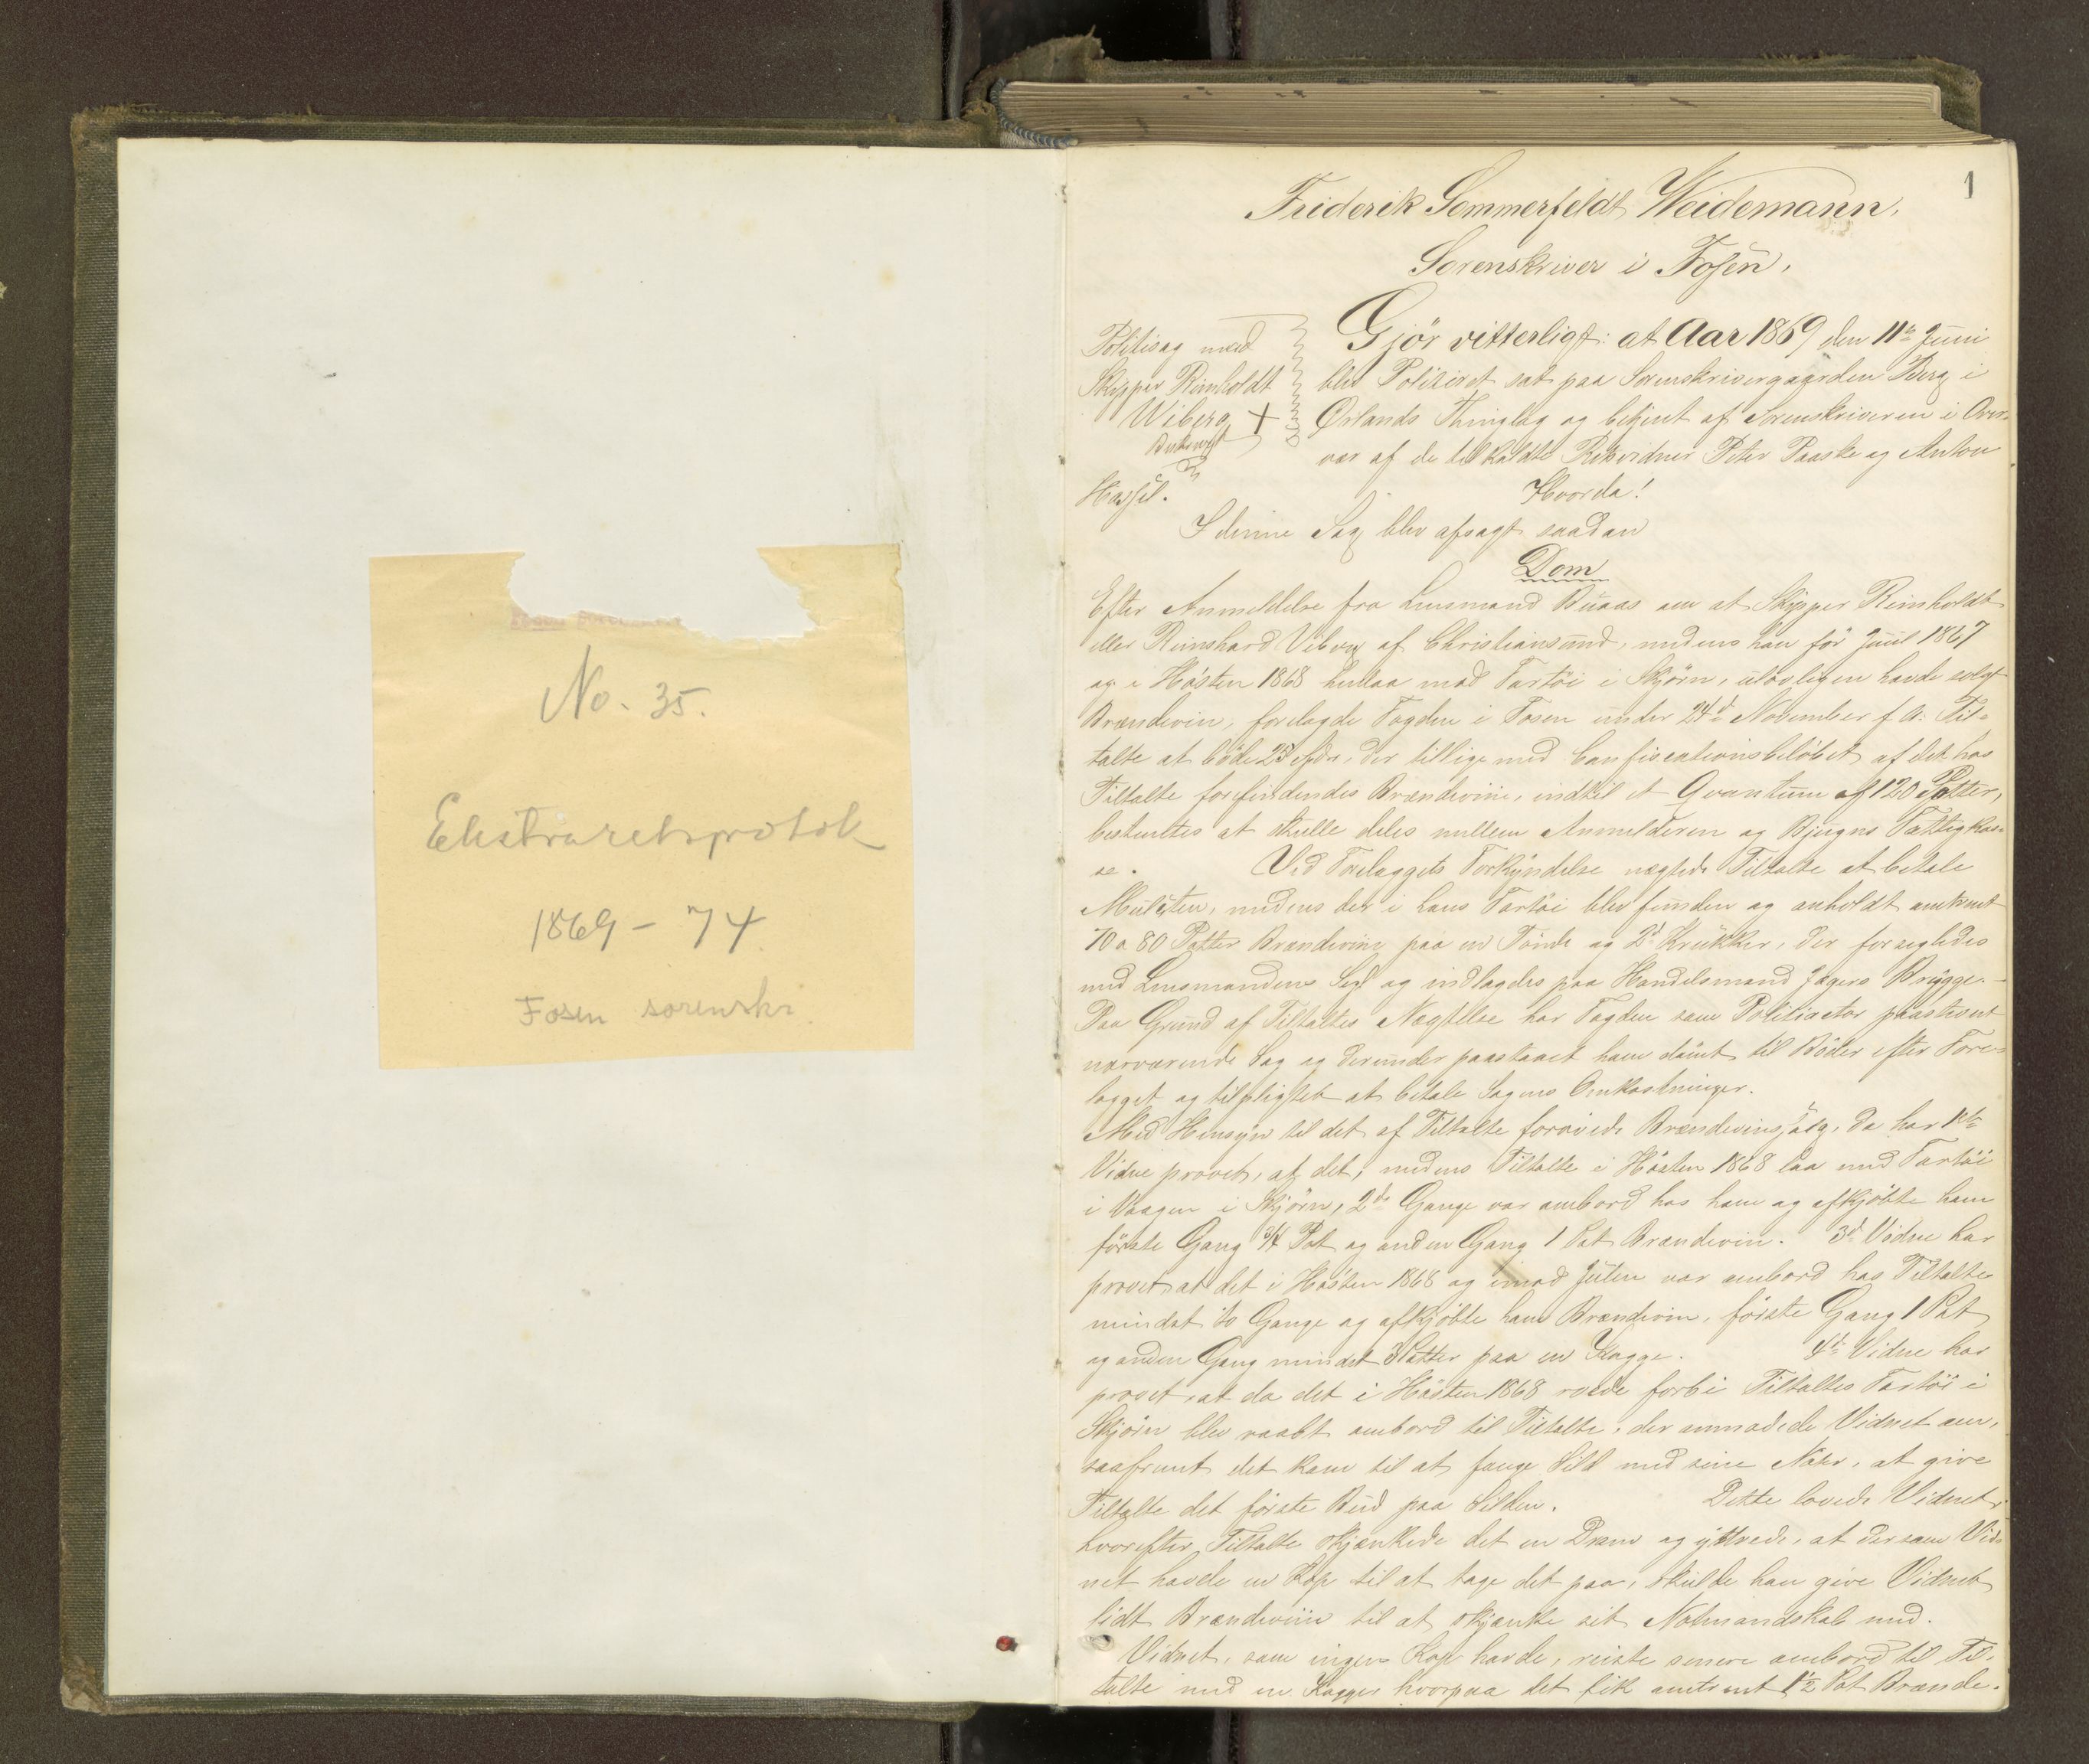 No. 35.
Ekstraretsprotok
1869 - 74
Fosen sorenskr.
1
Friderik Sommerfeldt Weidemann,
Sorenskriver i Fosen,
Politisag mod
Skipper Reinholdt
Wiberg +
Gjör vitterligt: at Aar 1869 den 11te Juni
blev Politiret sat paa Sorenskrivergaarden Berg i
Ørlands Thinglag og betjent af Sorenskriveren i Over-
vær af de tilkaldte Retsvidner Peter Paaske og Anton
Hassel.
Hvorda!
I denne Sag blev afsagt saadan
Dom
Efter Anmeldelse fra Lensmand Buaas om at Skipper Reinholdt
eller Reinhard Viberg af Christiansund, medens han før Juul 1867
og i Høsten 1868 henlaa med Fartöi i Skjörn, ulovligen havde solgt
Brændeviin, forelagde Fogden i Fosen under 24de November f. A. Til-
talte at böde 25 Spdr, der tillige med Confiscationsbelöbet af det hos
Tiltalte forefindendes Brændeviin, indtil et Qvantum af 120 Potter,
bestemtes at skulle deles mellem Anmelderen og Bjugns Fattigkas-
se. Ved Forelæggets Forkyndelse nægtede Tiltalte at betale
Mulcten, medens der i hans Fartöi blev funden og anholdt omtrent
70 a 80 Potter Brændeviin paa en Tönde og 2de Krukker, der forsegledes
med Lensmandens Segl og indlagdes paa Handelsmand Jægers Brygge.-
Paa Grund af Tiltaltes Nægtelse har Fogden som Politiactor paastevnt
nærværende Sag og derunder paastaaet ham dömt til Böder efter Fore-
lægget og tilpligtet at betale Sagens Omkostninger.
Med Hensyn til det af Tiltalte forøvede Brændeviinssalg, da har 1ste
Vidne provet, at det, medens Tiltalte i Høsten 1868 laa med Fartöi
i Vaagen i Skjörn, 2de Gange var ombord hos ham og afkjöbte ham
første Gang 3/4 Pot og anden Gang 1 Pot Brændeviin. 3de Vidne har
provet at det i Høsten 1868 og imod Julen var ombord hos Tiltalte
mindst to Gange og afkjöbte ham Brændeviin, første Gang 1 Pot
og anden Gang mindst 3 Potter paa en Kagge. 4de Vidne har
provet, at da det i Høsten 1868 roede forbi Tiltaltes Fartöi i
Skjörn blev raabt ombord til Tiltalte, der anmodede Vidnet om,
saafremt det kom til at fange Sild med sine Nöter, at give
Tiltalte det første Bud paa Silden. Dette lovede Vidnet,
hvorefter Tiltalte skjænkede det en Dram og yttrede, at dersom Vid-
net havde en Kop til at tage det paa, skulde han give Vidnet
lidt Brændeviin til at skjænke sit Notmandskab med.
Vidnet, som ingen Kop havde, reiste senere ombord til Til-
talte med en Kagge, hvorpaa det fik omtrent 1 1/2 Pot Brænde-